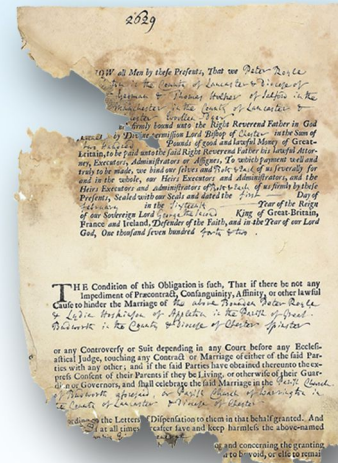 2629
OW all Men by these Presents, That we Peter Royle
the County of Lancaster & Diocese of
& Thomas of Salford in the
in the County of Lancaster &
firmly bound unto the Right Reverend Father in God
by Divine permission Lord Bishop of Chester in the Sum of
Pounds of good and lawful Money of Great-
Britain, to be paid unto the said Right Reverend Father his lawful Attor-
ney, Executors, Administrators or Assignes. To which payment well and
truly to be made, we bind our selves and of us severally for
and in the whole, our Heirs Executors and Administrators, and the
Heirs Executors and Administrators of of us firmly by these
Presents, Sealed with our Seals and dated the first Day of
February in the Sixteenth Year of the Reign
of our Sovereign Lord George the second King of Great-Britain,
France and Ireland, Defender of the Faith, and in the Year of our Lord
God, One thousand seven hundred forty & two.
THE Condition of this Obligation is such, That if there be not any
Impediment of Præcontract, Consanguinity, Affinity, or other lawful
Cause to hinder the Marriage of the above Peter Royle
& Lydia Hoskinson of Appleton in the Parish of Great
Budworth in the County & Diocese of Chester Spinster
or any Controversy or Suit depending in any Court before any Ecclesi-
astical Judge, touching any Contract or Marriage of either of the said Par-
ties with any other; and if the said Parties have obtained thereunto the ex-
press Consent of their Parents if they be Living, or otherwise of their Guar-
or Governors, and shall celebrate the said Marriage in the Parish Church
Budworth aforesaid, or Parish Church of Warrington in
County of Lancaster & Diocese of Chester
the Letters Dispensation to them in that behalf granted. And
at all times save and keep harmless the above-named
and concerning the granting
to be void, or else to remain